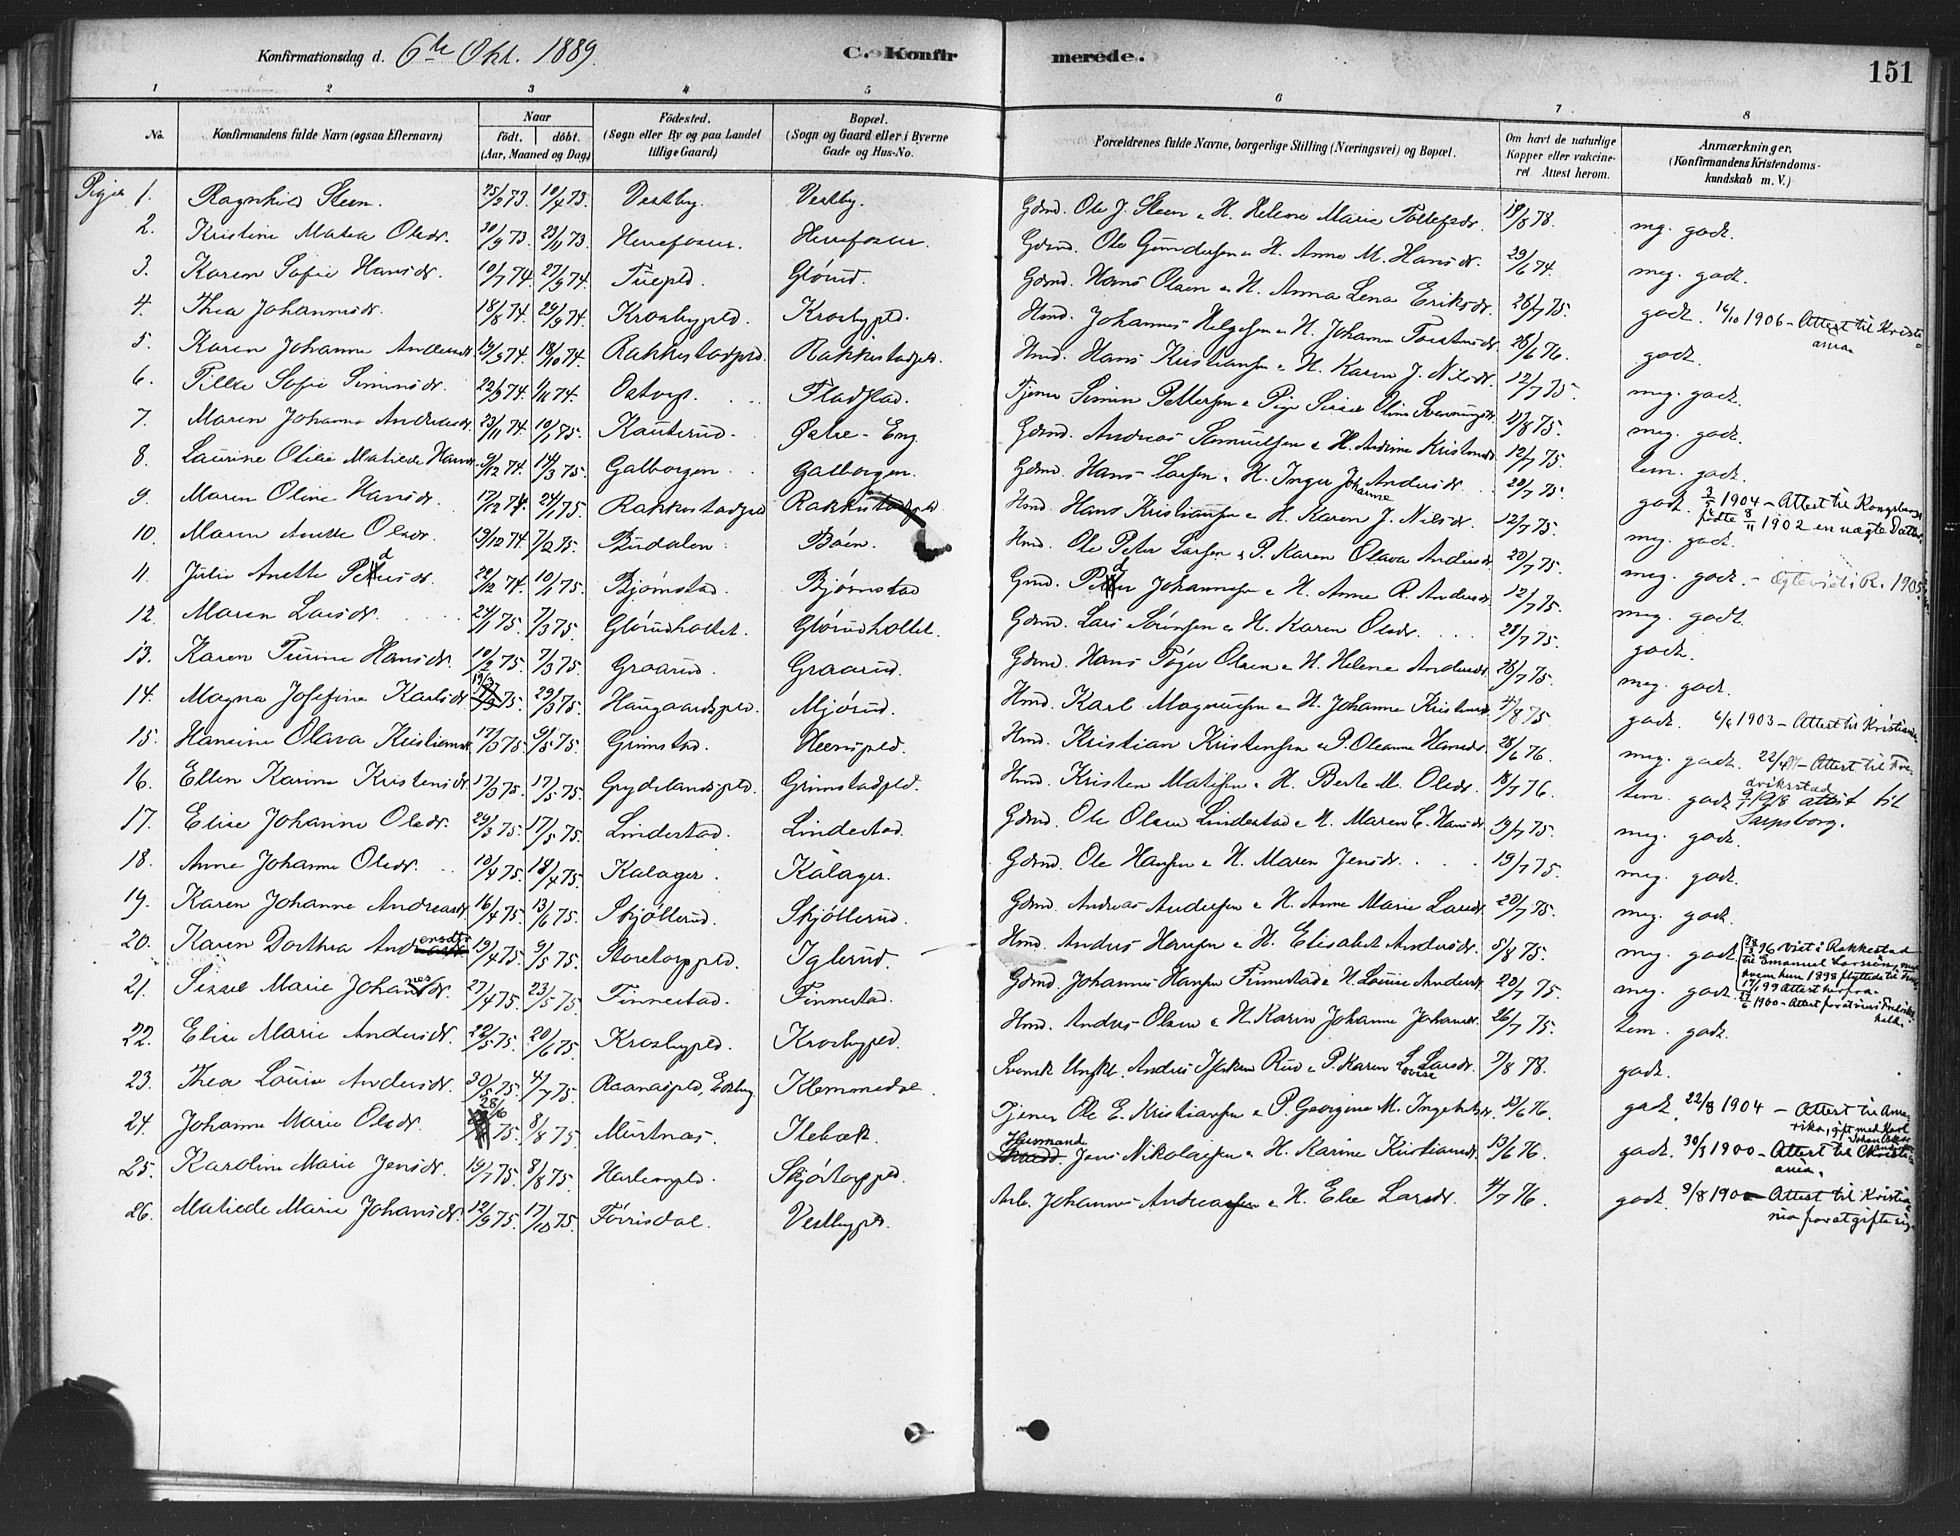 Konfirmationsdag d. 6te Okt. 1889.
C. Konfirmerede.
151
1 2 3 4 5 6 7 8
No.
Konfirmandens fulde Navn (ogsaa Efternavn)
Naar
født. døbt.
(Aar, Maaned og Dag)
Fødested.
(Sogn eller By og paa Landet
tillige Gaard)
Bopæl.
(Sogn og Gaard eller i Byerne
Gade og Hus-No.
Forældrenes fulde Navne, borgerlige Stilling (Næringsvei) og Bopæl.
Om havt de naturlige
Kopper eller vakcine-
ret Attest herom.
Anmærkninger,
(Konfirmandens Kristendoms-
kundskab m. V.)
Piger 1. Ragnhild Steen. 25/2 73. 10/4 73. Vestby. Vestby. Gdmd. Ole J. Steen & H. Helene Marie Tollefsdr. 19/8 78. mg. godt.
2. Kristine Matea Olsdr. 30/9 73. 23/11 73. Herrefosser. Herrefosser. Gdmd. Ole Gundersen & H. Anne M. Hansdr. 29/6 74. meg. godt.
3. Karen Sofie Hansdr. 10/7 74. 27/9 74. Tuepld. Glórud. Gdmd. Hans Olsen & H. Anna Lena Eriksdr. 26/7 75. godt. 16/10 1906 - Attest til Kristi=
ania.
4. Thea Johannesdr. 18/8 74. 29/9 74. Krosbypld. Krosbypld. Hmd. Johannes Helgesen & H. Johanne Torstensdr. 28/6 76. godt.
5. Karen Johanne Andersdr. 13/9 74. 18/10 74. Rakkestadpld. Rakkestadpld. Hmd. Hans Kristiansen & H. Karen J. Nilsdr. 12/7 75. meg. godt.
6. Tilla Sofie Simensdr. 22/9 74. 1/11 74. Ostorp. Fladstad. Tjener Simen Pettersen & Pige Sissel Oline Svenningsdr. 11/8 75. meg. godt.
7. Maren Johanne Andreasdr. 23/11 74. 10/1 75. Kauterud. Østre-Eng. Gdmd. Andreas Samuelsen & H. Andrine Kristensdr. 12/7 75. tem. godt.
8. Laurine Otilie Matilde Hansdr. 9/12 74. 14/3 75. Galborgen. Galborgen. Gdmd. Hans Larsen & H. Inger Johanne Andersdr. 20/7 75. godt. 3/5 1904 - Attest til Kongsberg
9. Maren Oline Hansdr. 17/12 74. 24/1 75. Rakkestadpld. Rakkestadpld. Hmd. Hans Kristiansen & H. Karen J. Nilsdr. 12/7 75. meg. godt. fødte 8/11 1902 en uægte Datter.
10. Maren Anette Olsdr. 13/12 74. 7/2 75. Budalen. Bøen. Hmd. Ole Peter Larsen & P. Karen Olava Andersdr. 20/7 75. meg. godt. - Egteviet i R. 1905.
11. Julie Anette Pedersdr. 22/12 74. 10/1 75. Bjørnstad. Bjørnstad. Gmd. Peder Johannesen & H. Anne R. Andersdr. 12/7 75. meg. godt.
12. Maren Larsdr. 24/1 75. 7/3 75. Glórudholtet. Glórudholtet. Gdmd. Lars Sørensen & H. Karen Olsdr. 28/7 75. godt.
13. Karen Turine Hansdr. 10/2 75. 7/3 75. Graarud. Graarud. Gdmd. Hans Tøger Olsen & H. Helene Andersdr. 28/7 75. meg. godt.
14. Magna Josefine Karlsdr. 19/3 75. 29/3 75. Haugaardspld. Mjørud. Hmd. Karl Magnussen & H. Johanne Kristensdr. 4/8 75. godt. 6/6 1903 - Attest til Kristiania
15. Hansine Olava Kristiansdr. 17/3 75. 9/5 75. Grimstad. Heenspld. Hmd. Kristian Kristensen & P. Oleanne Hansdr. 28/6 76. meg. godt. 22/4 - Attest til Fre=
drikstad
16. Ellen Karine Kristensdr. 17/3 75. 17/5 75. Grydelandspld. Grimstadpld. Hmd. Kristen Matisen & H. Berte M. Olsdr. 18/7 76. tem. godt. 9/7 1918 attest til
Sarpsborg.
17. Elise Johanne Olsdr. 29/3 75. 17/5 75. Lindestad. Lindestad. Gdmd. Ole Olsen Lindestad & H. Maren C. Hansdr. 19/7 75. meg. godt.
18. Anne Johanne Olsdr. 10/4 75. 18/4 75. Kalager. Kalager. Gdmd. Ole Hansen & H. Maren Jensdr. 19/7 75. meg. godt.
19. Karen Johanne Andreasdr. 16/4 75. 13/6 75. Skjøllerud. Skjøllerud. Gdmd. Andreas Andersen & H. Anne Marie Larsdr. 20/7 75. meg. godt.
20. Karen Dorthea Andersdr. 19/4 75. 9/5 75. Storetorppld. Iglerud. Hmd. Anders Hansen & H. Elisabet Andersdr. 5/8 75. meg. godt. 96 viet i Rakkestad
til Emanuel Larssøn, med
hvem hun 1898 flyttede til
21. Sissel Marie Johannesdr. 27/4 75. 23/5 75. Finnestad. Finnestad. Gdmd. Johannes Hansen Finnestad & H. Louise Andersdr. 20/7 75. meg. godt. 17/1 99 Attest herfra.
1900 - Attest for at
22. Elise Marie Andersdr. 22/5 75. 20/6 75. Krosbypld. Krosbypld. Hmd. Anders Olsen & H. Karen Johanne Johansdr. 26/7 75. tem. godt.
23. Thea Louise Andersdr. 30/5 75. 4/7 75. Raanaaspld, Edsberg. Klemmedal. Svensk Ungkl. Anders Isaksen Rud & P. Karen Lovise Larsdr. 7/8 78. godt.
24. Johanne Marie Olsdr. 28/6 75. 8/8 75. Murtnæs. Ilebæk. Tjener Ole E. Kristiansen & P. Georgine M. Ingebretsdr. 13/6 76. godt. 22/8 1904 - Attest til Ame-
rika, gift med Karl
25. Karoline Marie Jensdr. 19/7 75. 8/8 75. Harlempld. Skjørtorppld. Husmand Jens Nikolaisen & H. Karine Kristiansdr. 13/6 76. godt. 30/3 1900 - Attest til Kristi
ania.
26. Matilde Marie Johansdr. 12/9 75. 17/10 75. Førrisdal. Vestbypld. Arb. Johannes Andreassen & H. Else Larsdr. 4/7 76. godt. 9/8 1900 - Attest til Kristia
nia for at gifte sig.